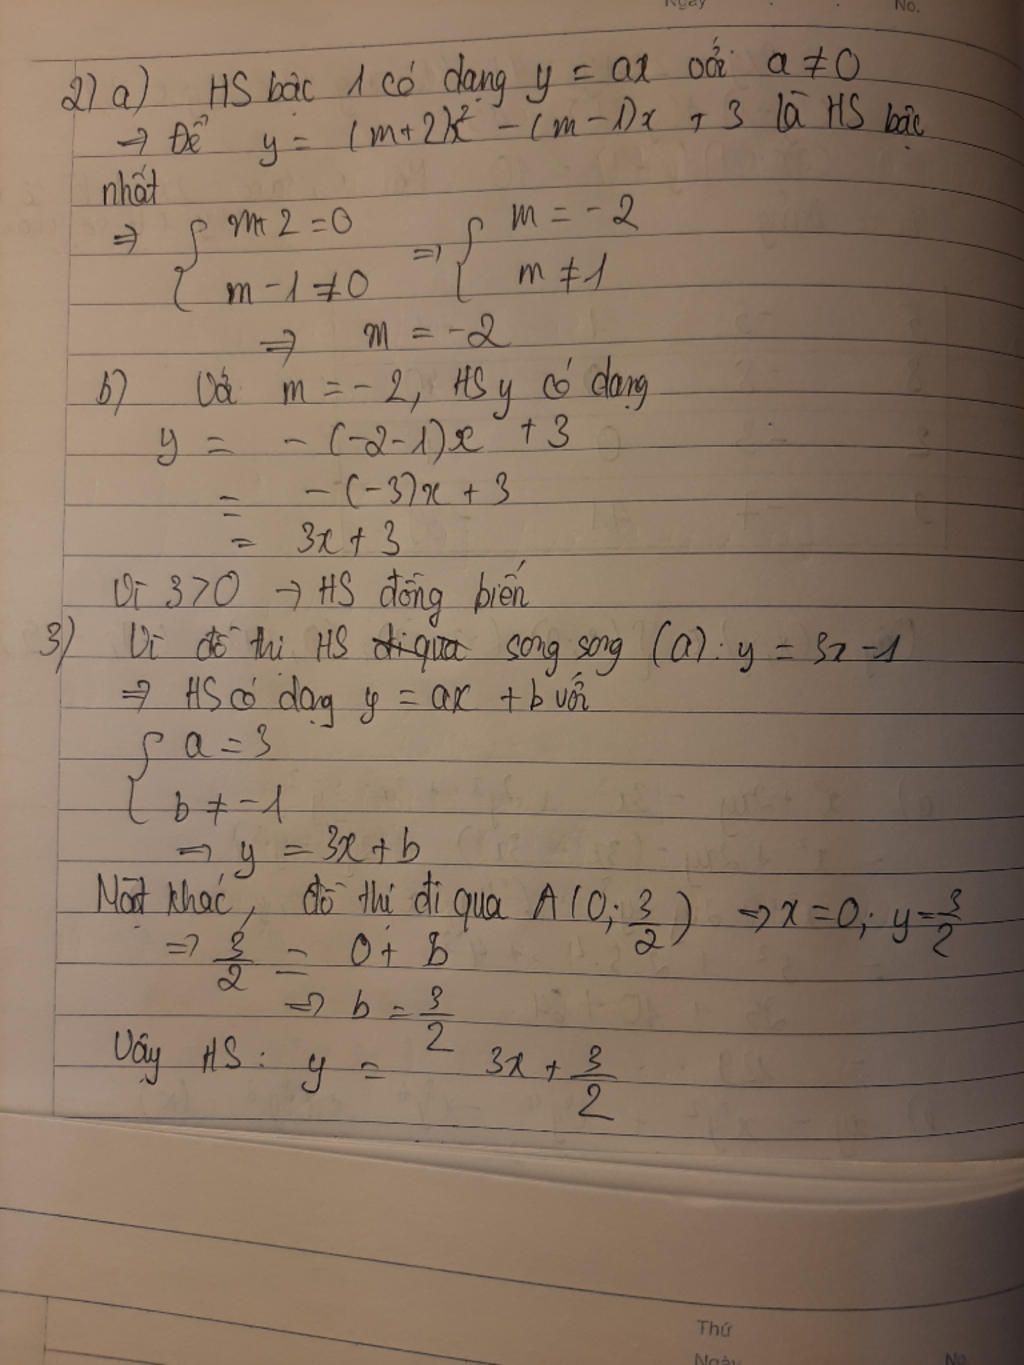 Ngày
No.
2) a) HS bậc 1 có dạng y = ax với a ≠ 0
⇒ Để y = (m+2)x² - (m-1)x + 3 là HS bậc
nhất
⇒ { m+2=0 ⇒ { m = -2
m-1≠0 m≠1
⇒ m = -2
b) Với m = -2, HS y có dạng
y = - (-2-1)x + 3
= - (-3)x + 3
= 3x + 3
Vì 3>0 → HS đồng biến
3) Vì đồ thị HS đi qua song song (a): y = 3x-1
⇒ HS có dạng y = ax + b với
{ a = 3
b ≠ -1
⇒ y = 3x+b
Mặt khác, đồ thị đi qua A(0; 3/2) ⇒ x=0; y=3/2
⇒ 3/2 = 0 + b
⇒ b = 3/2
Vậy HS: y = 3x + 3/2
Thứ
Ngày
No.